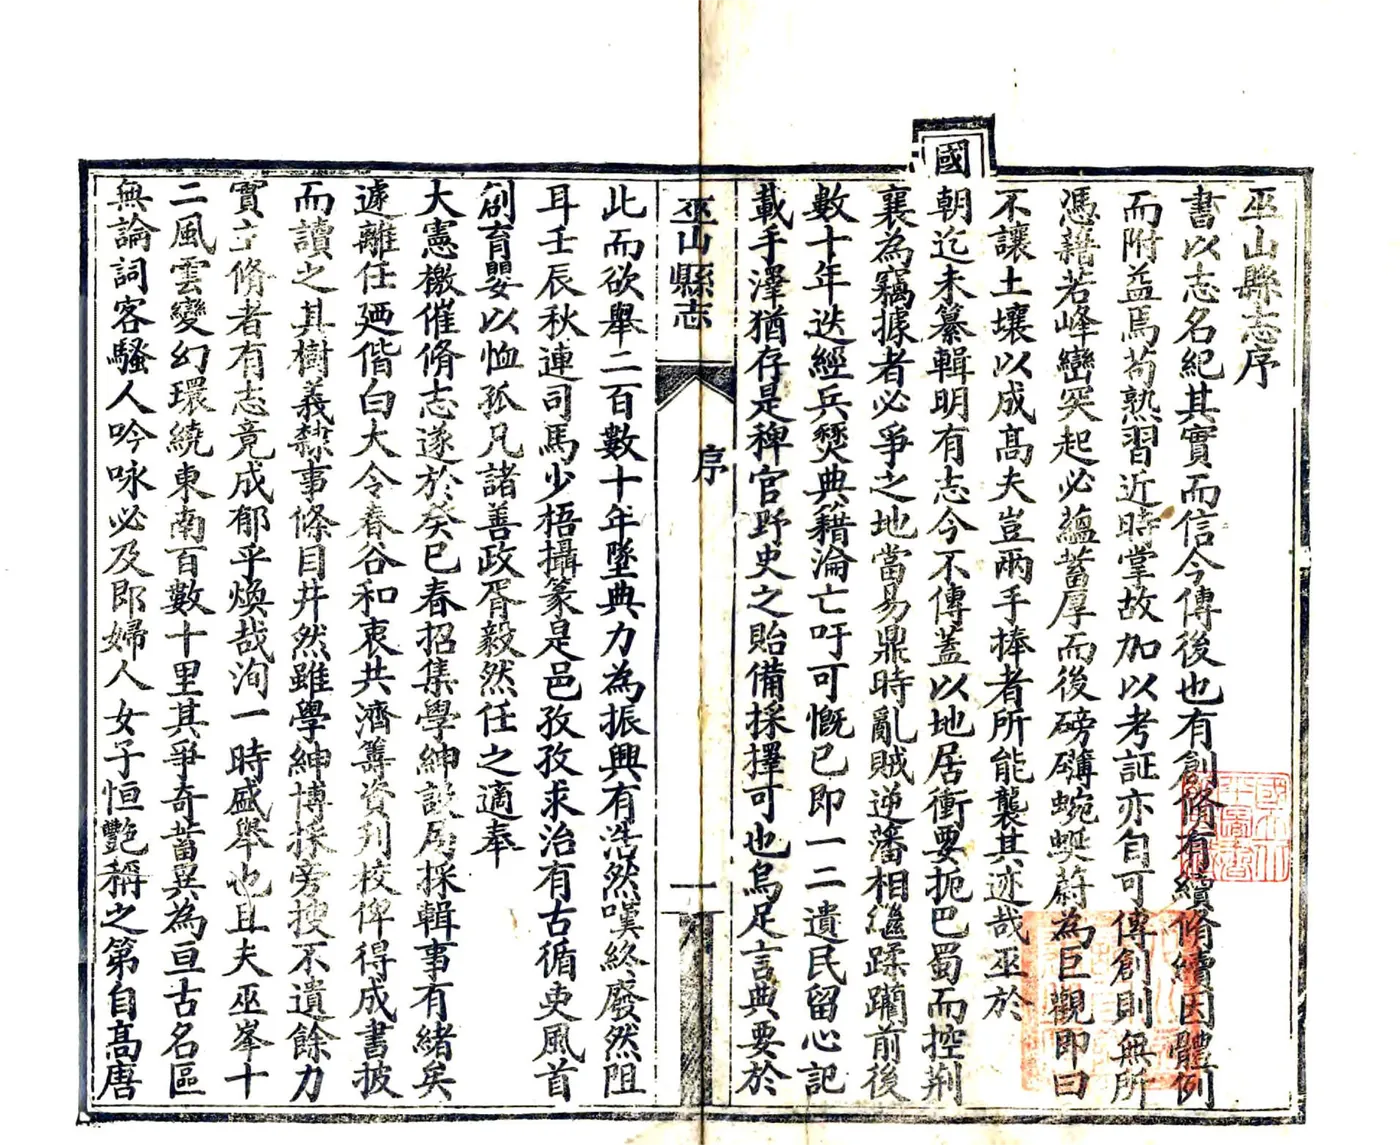 巫山縣志序
書以志名紀其實而信今傳後也有創脩有續脩續因體例
而附益焉苟熟習近時掌故加以考証亦自可傳創則無所
憑藉若峰巒突起必蘊蓄厚而後磅礴蜿蜒蔚為巨觀即曰
不讓土壤以成高夫豈兩手捧者所能襲其迹哉巫於
國
朝迄未纂輯明有志今不傳蓋以地居衝要扼巴蜀而控荆
襄為竊據者必爭之地當易鼎時亂賊逆藩相繼蹂躪前後
數十年迭經兵燹典籍淪亡吁可慨已即一二遺民留心記
載手澤猶存是稗官野史之貽備採擇可也烏足言典要於
巫山縣志
序
一
此而欲舉二百數十年墜典力為振興有浩然嘆終廢然阻
耳壬辰秋連司馬少梧攝篆是邑孜孜求治有古循吏風首
創育嬰以恤孤凡諸善政胥毅然任之適奉
大憲檄催脩志遂於癸巳春招集學紳設局採輯事有緒矣
遽離任廼偕白大令春谷和衷共濟籌資列校俾得成書披
而讀之其樹義隸事條目井然雖學紳博採旁搜不遺餘力
實立脩者有志竟成郁乎煥哉洵一時盛舉也且夫巫峯十
二風雲變幻環繞東南百數十里其爭奇蓄異為亘古名區
無論詞客騷人吟咏必及即婦人女子恒艷稱之第自高唐